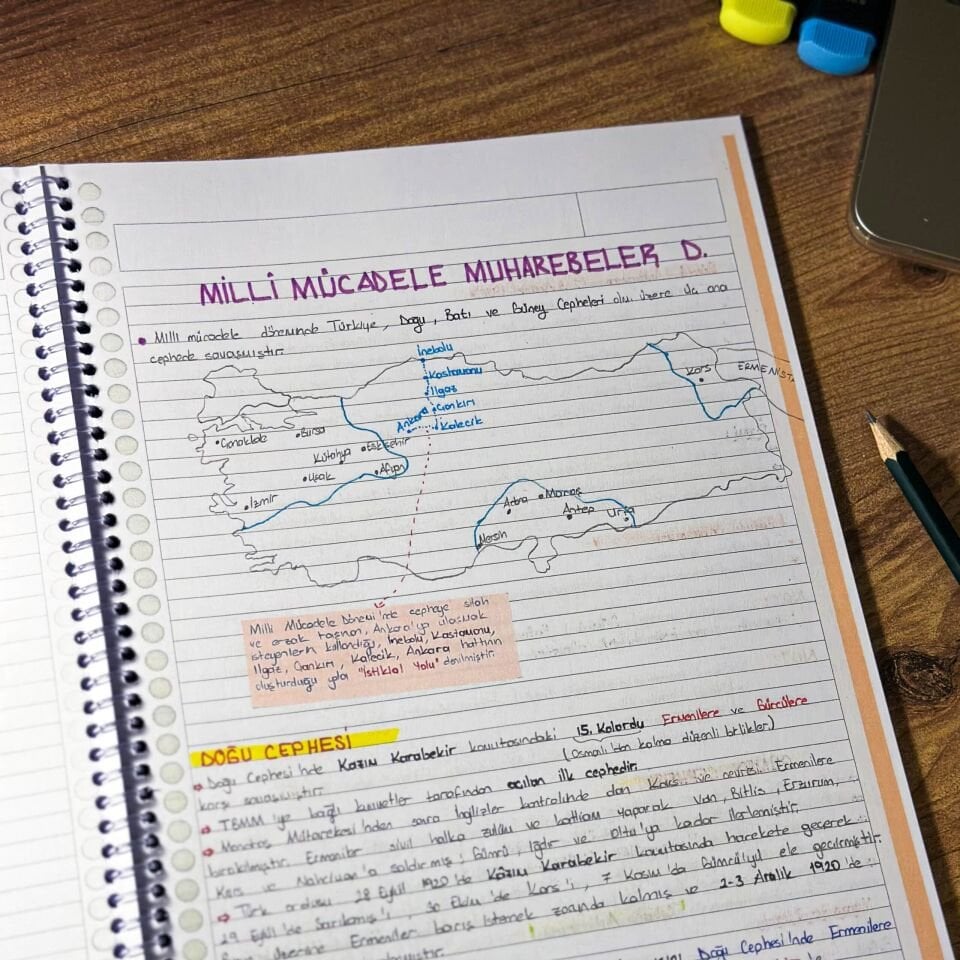 MİLLİ MÜCADELE MUHAREBELER D.
• Milli mücadele döneminde Türkiye, Doğu, Batı ve Güney Cepheleri olm. üzere üç ana
cephede savaşmıştır.
İnebolu
Kastamonu
Ilgaz
Çankırı
Ankara
Kalecik
Kars
ERMENİST
Çanakkale
Bursa
Eskişehir
Kütahya
Uşak
Afyon
İzmir
Adana
Maraş
Antep
Urfa
Mersin
Milli Mücadele Dönemi'nde cepheye silah
ve erzak taşınan, Ankara'ya ulaşmak
isteyenlerin kullandığı, İnebolu, Kastamonu,
Ilgaz, Çankırı, Kalecik, Ankara hattının
oluşturduğu yola "İstiklal Yolu" denilmiştir.
DOĞU CEPHESİ
Doğu Cephesi'nde Kazım Karabekir komutasındaki 15. Kolordu Ermenilere ve Gürcülere
karşı savaşmıştır. (Osmanlı'dan kalma düzenli birlikler)
TBMM'ye bağlı kuvvetler tarafından açılan ilk cephedir.
Mondros Mütarekesi'nden sonra İngilizler kontrolünde olan Kars ve Ermenilere
bırakılmıştır. Ermeniler sivil halka zulüm ve katliam yaparak Van, Bitlis, Erzurum,
Kars ve Nahcivan'a saldırmış; Gümrü, Iğdır ve Oltu'ya kadar ilerlemiştir.
Türk ordusu 28 Eylül 1920'de Kâzım Karabekir komutasında harekete geçerek
29 Eylül'de Sarıkamış'ı, 30 Ekim'de Kars'ı, 7 Kasım'da Gümrü'yü ele geçirmiştir.
üzerine Ermeniler barış istemek zorunda kalmış ve 2-3 Aralık 1920'de
Doğu Cephesi'nde Ermenilere